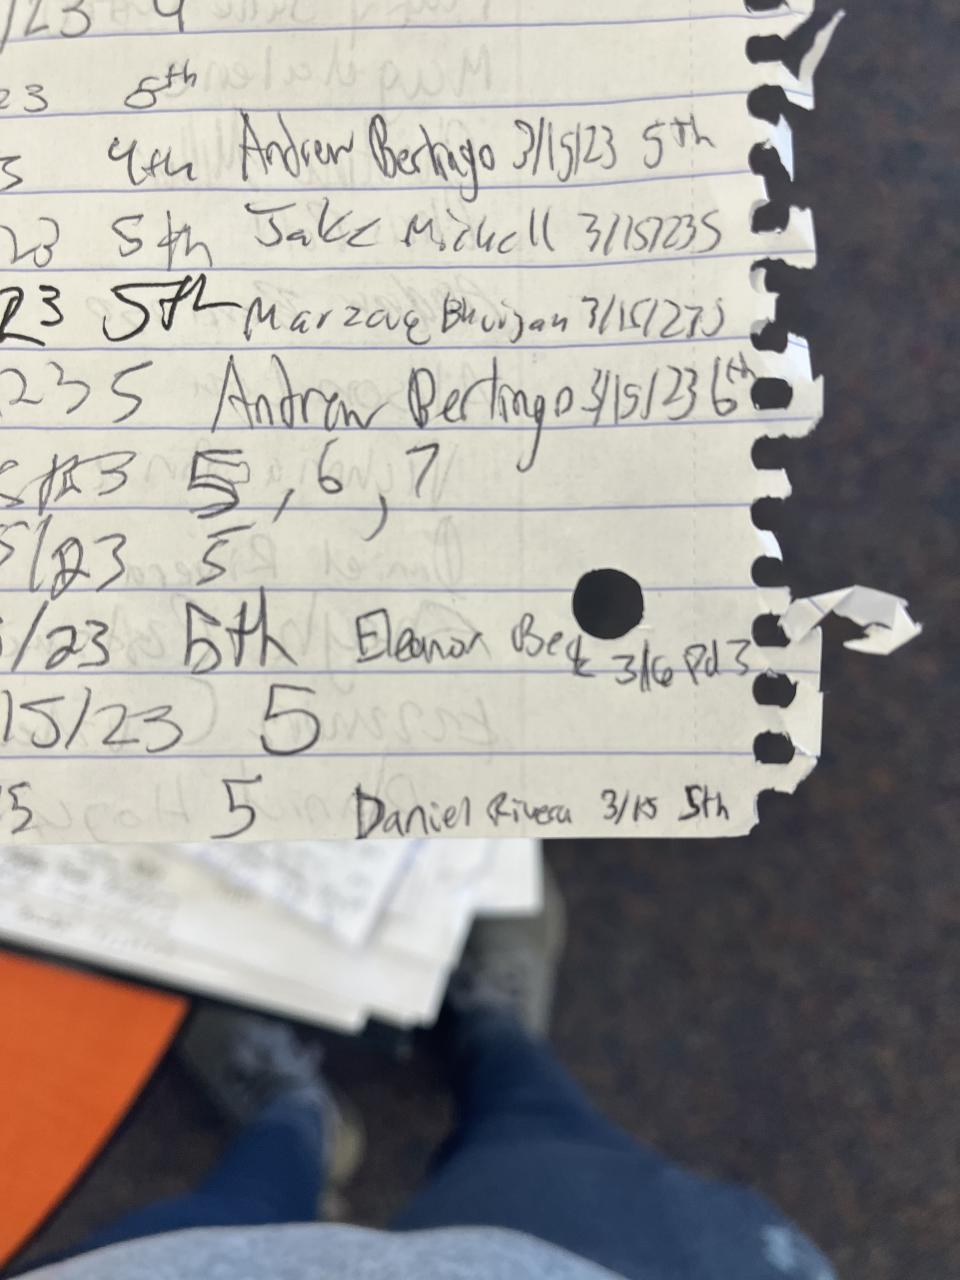 /23 4
23 8th
3 4th Andrew Bertingo 3/15/23 5th
23 5th Jake Mickell 3/15/23 5
23 5th Marzouq Bhuiyan 3/15/23 5
23 5 Andrew Bertingo 3/15/23 6th
23 5, 6, 7
5/23 5
/23 5th Eleanor Beck 3/6 Pd 3
15/23 5
5 5 Daniel Rivera 3/15 5th